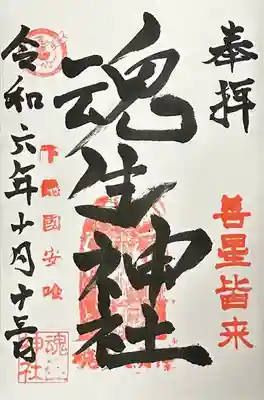 奉拝
善星皆来
魂生神社
下総國安喰
魂生神社
令和六年十月十三日